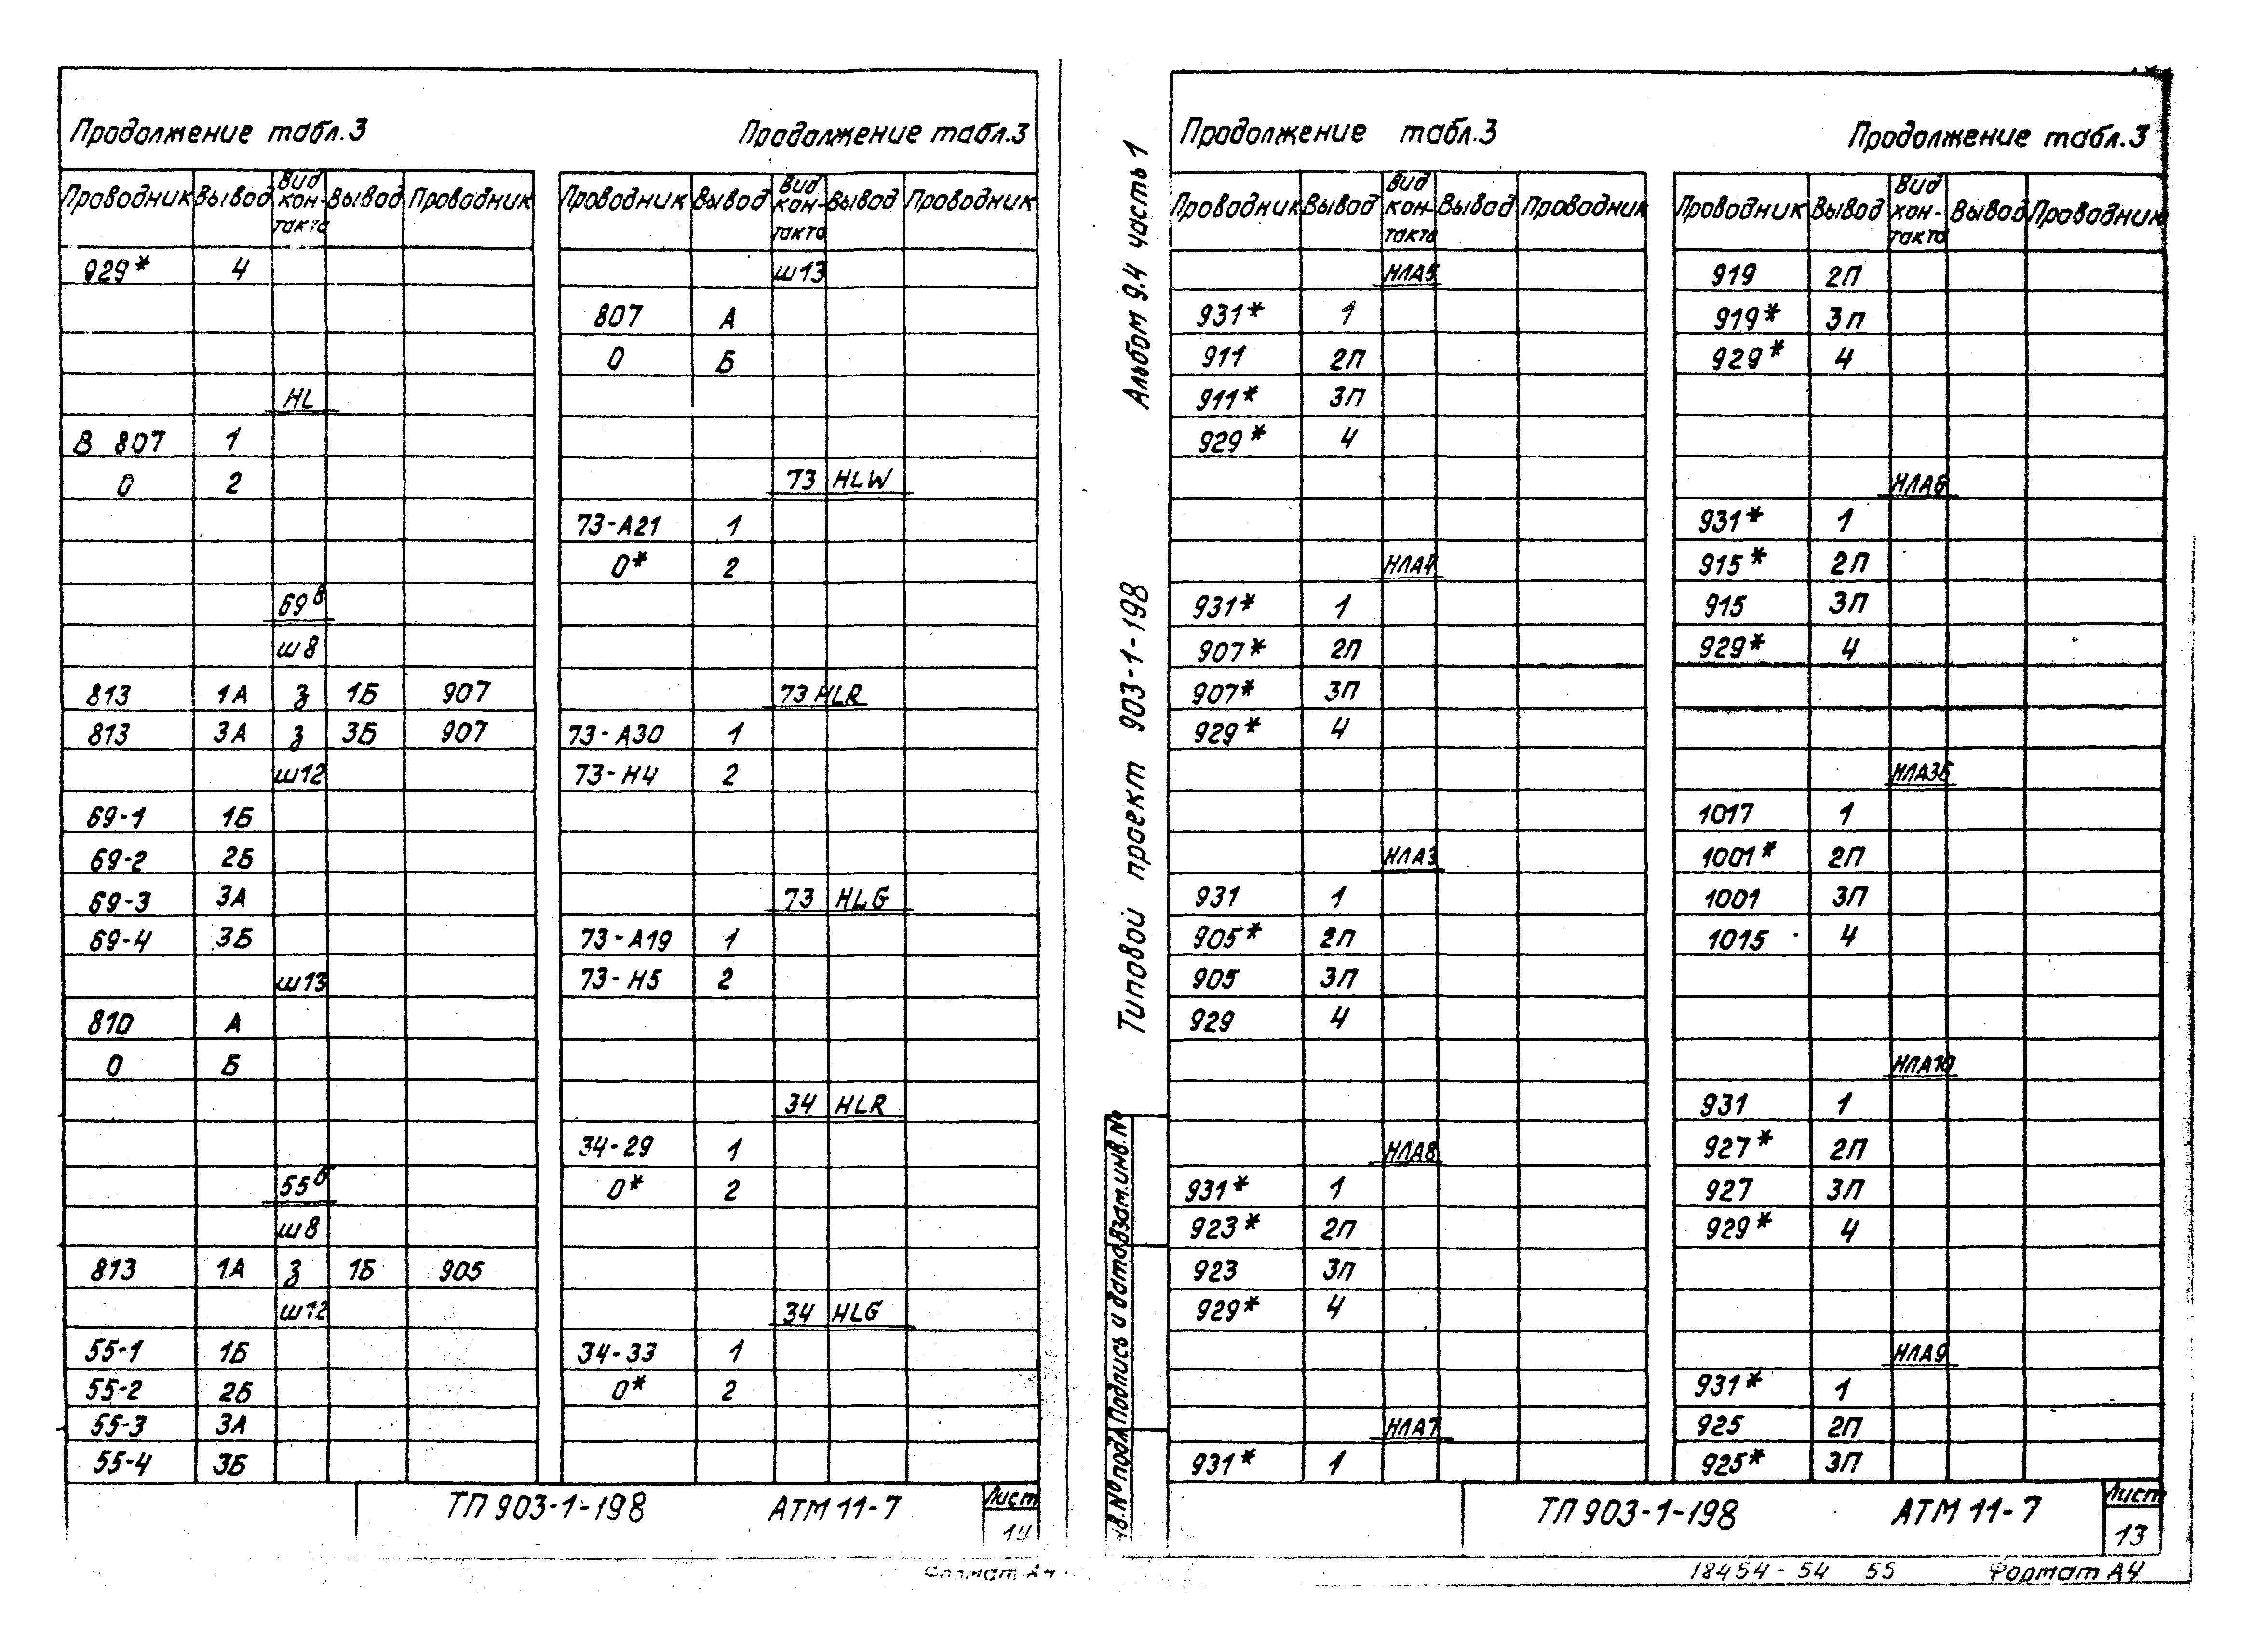 Продолжение табл.3
Проводник Вывод Вид контакта Вывод Проводник
929* 4
HL
В 807 1
0 2
69в
ш8
813 1А з 1Б 907
813 3А з 3Б 907
ш12
69-1 1Б
69-2 2Б
69-3 3А
69-4 3Б
ш13
810 А
0 Б
55б
ш8
813 1А з 1Б 905
ш12
55-1 1Б
55-2 2Б
55-3 3А
55-4 3Б
Продолжение табл.3
Проводник Вывод Вид контакта Вывод Проводник
ш13
807 А
0 Б
73 HLW
73-А21 1
0* 2
73 HLR
73-А30 1
73-Н4 2
73 HLG
73-А19 1
73-Н5 2
34 HLR
34-29 1
0* 2
34 HLG
34-33 1
0* 2
ТП 903-1-198 АТМ 11-7
Лист
14
Формат А4
Альбом 9.4 часть 1
Типовой проект 903-1-198
Взам.инв.№
Подпись и дата
Инв.№ подл.
Продолжение табл.3
Проводник Вывод Вид контакта Вывод Проводник
НЛА5
931* 1
911 2П
911* 3П
929* 4
НЛА4
931* 1
907* 2П
907* 3П
929* 4
НЛА3
931 1
905* 2П
905 3П
929 4
НЛА8
931* 1
923* 2П
923 3П
929* 4
НЛА7
931* 1
Продолжение табл.3
Проводник Вывод Вид контакта Вывод Проводник
919 2П
919* 3П
929* 4
НЛА6
931* 1
915* 2П
915 3П
929* 4
НЛА3Б
1017 1
1001* 2П
1001 3П
1015 4
НЛА10
931 1
927* 2П
927 3П
929* 4
НЛА9
931* 1
925 2П
925* 3П
ТП 903-1-198 АТМ 11-7
Лист
13
18454-54 55 Формат А4